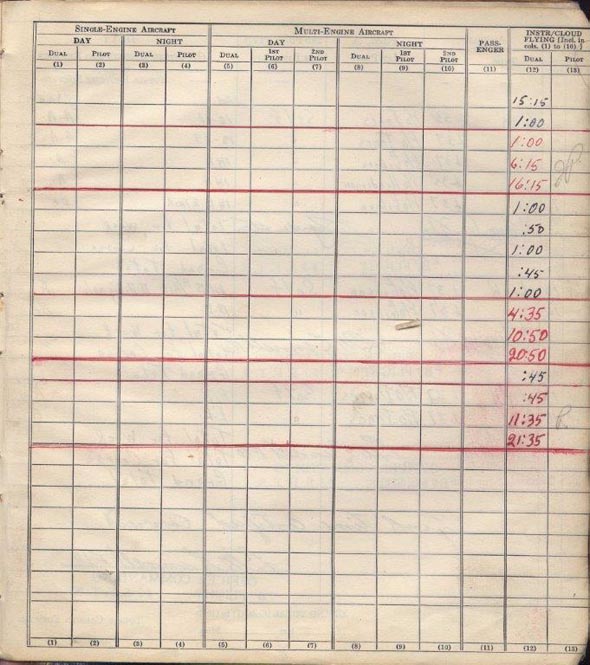 SINGLE-ENGINE AIRCRAFT MULTI-ENGINE AIRCRAFT PASS-ENGER INSTR/CLOUD FLYING [Incl. in cols. (1) to (10).]
DAY NIGHT DAY NIGHT
DUAL PILOT DUAL PILOT DUAL 1ST PILOT 2ND PILOT DUAL 1ST PILOT 2ND PILOT DUAL PILOT
(1) (2) (3) (4) (5) (6) (7) (8) (9) (10) (11) (12) (13)
15:15
1:00
1:00
6:15
16:15
1:00
:50
1:00
:45
1:00
4:35
10:50
20:50
:45
:45
11:35
21:35
(1) (2) (3) (4) (5) (6) (7) (8) (9) (10) (11) (12) (13)